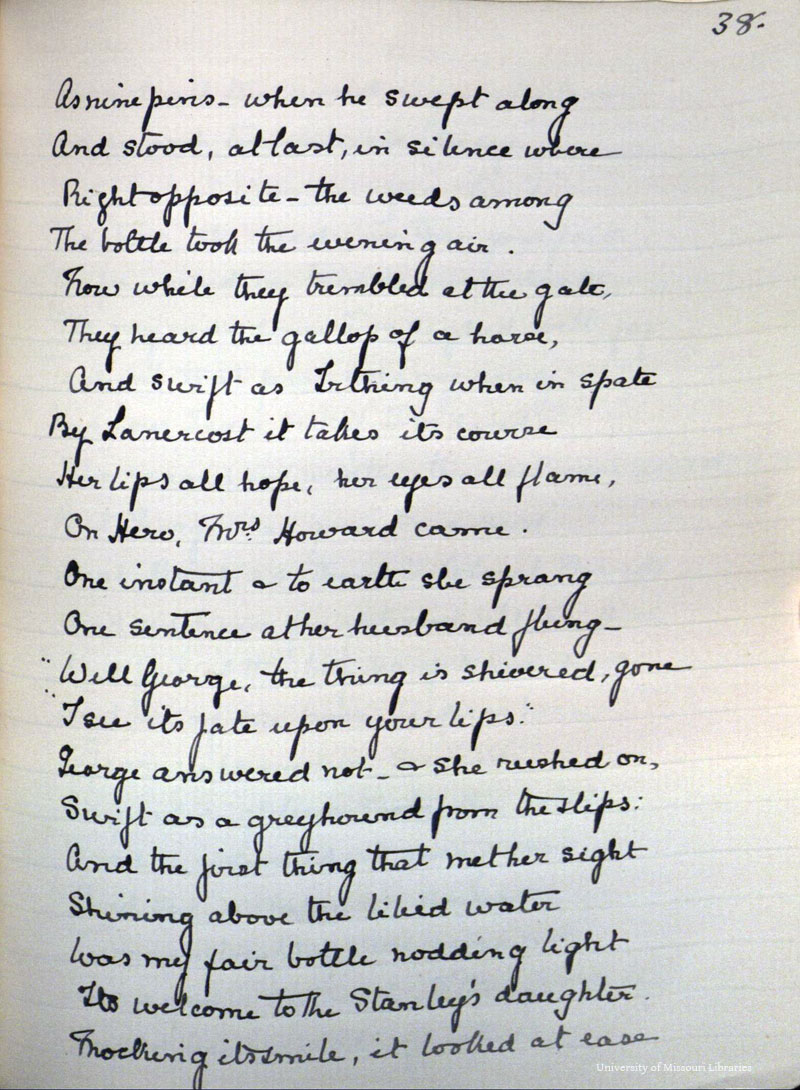 38.
As nine pins - when he swept along
And stood, at last, in silence where
Right opposite - the weeds among
The bottle took the evening air.
Now while they trembled at the gate,
They heard the gallop of a horse,
And swift as Irthing when in spate
By Lanercost it takes its course
Her lips all hope, her eyes all flame,
On Hero, Mrs. Howard came.
One instant & to earth she sprang
One sentence at her husband flung -
"Well George, the thing is shivered, gone
"I see its fate upon your lips."
George answered not - & she rushed on,
Swift as a greyhound from the slips:
And the first thing that met her sight
Shining above the lilied water
Was my fair bottle nodding light
Its welcome to the Stanley's daughter.
Mocking its smile, it looked at ease
University of Missouri Libraries